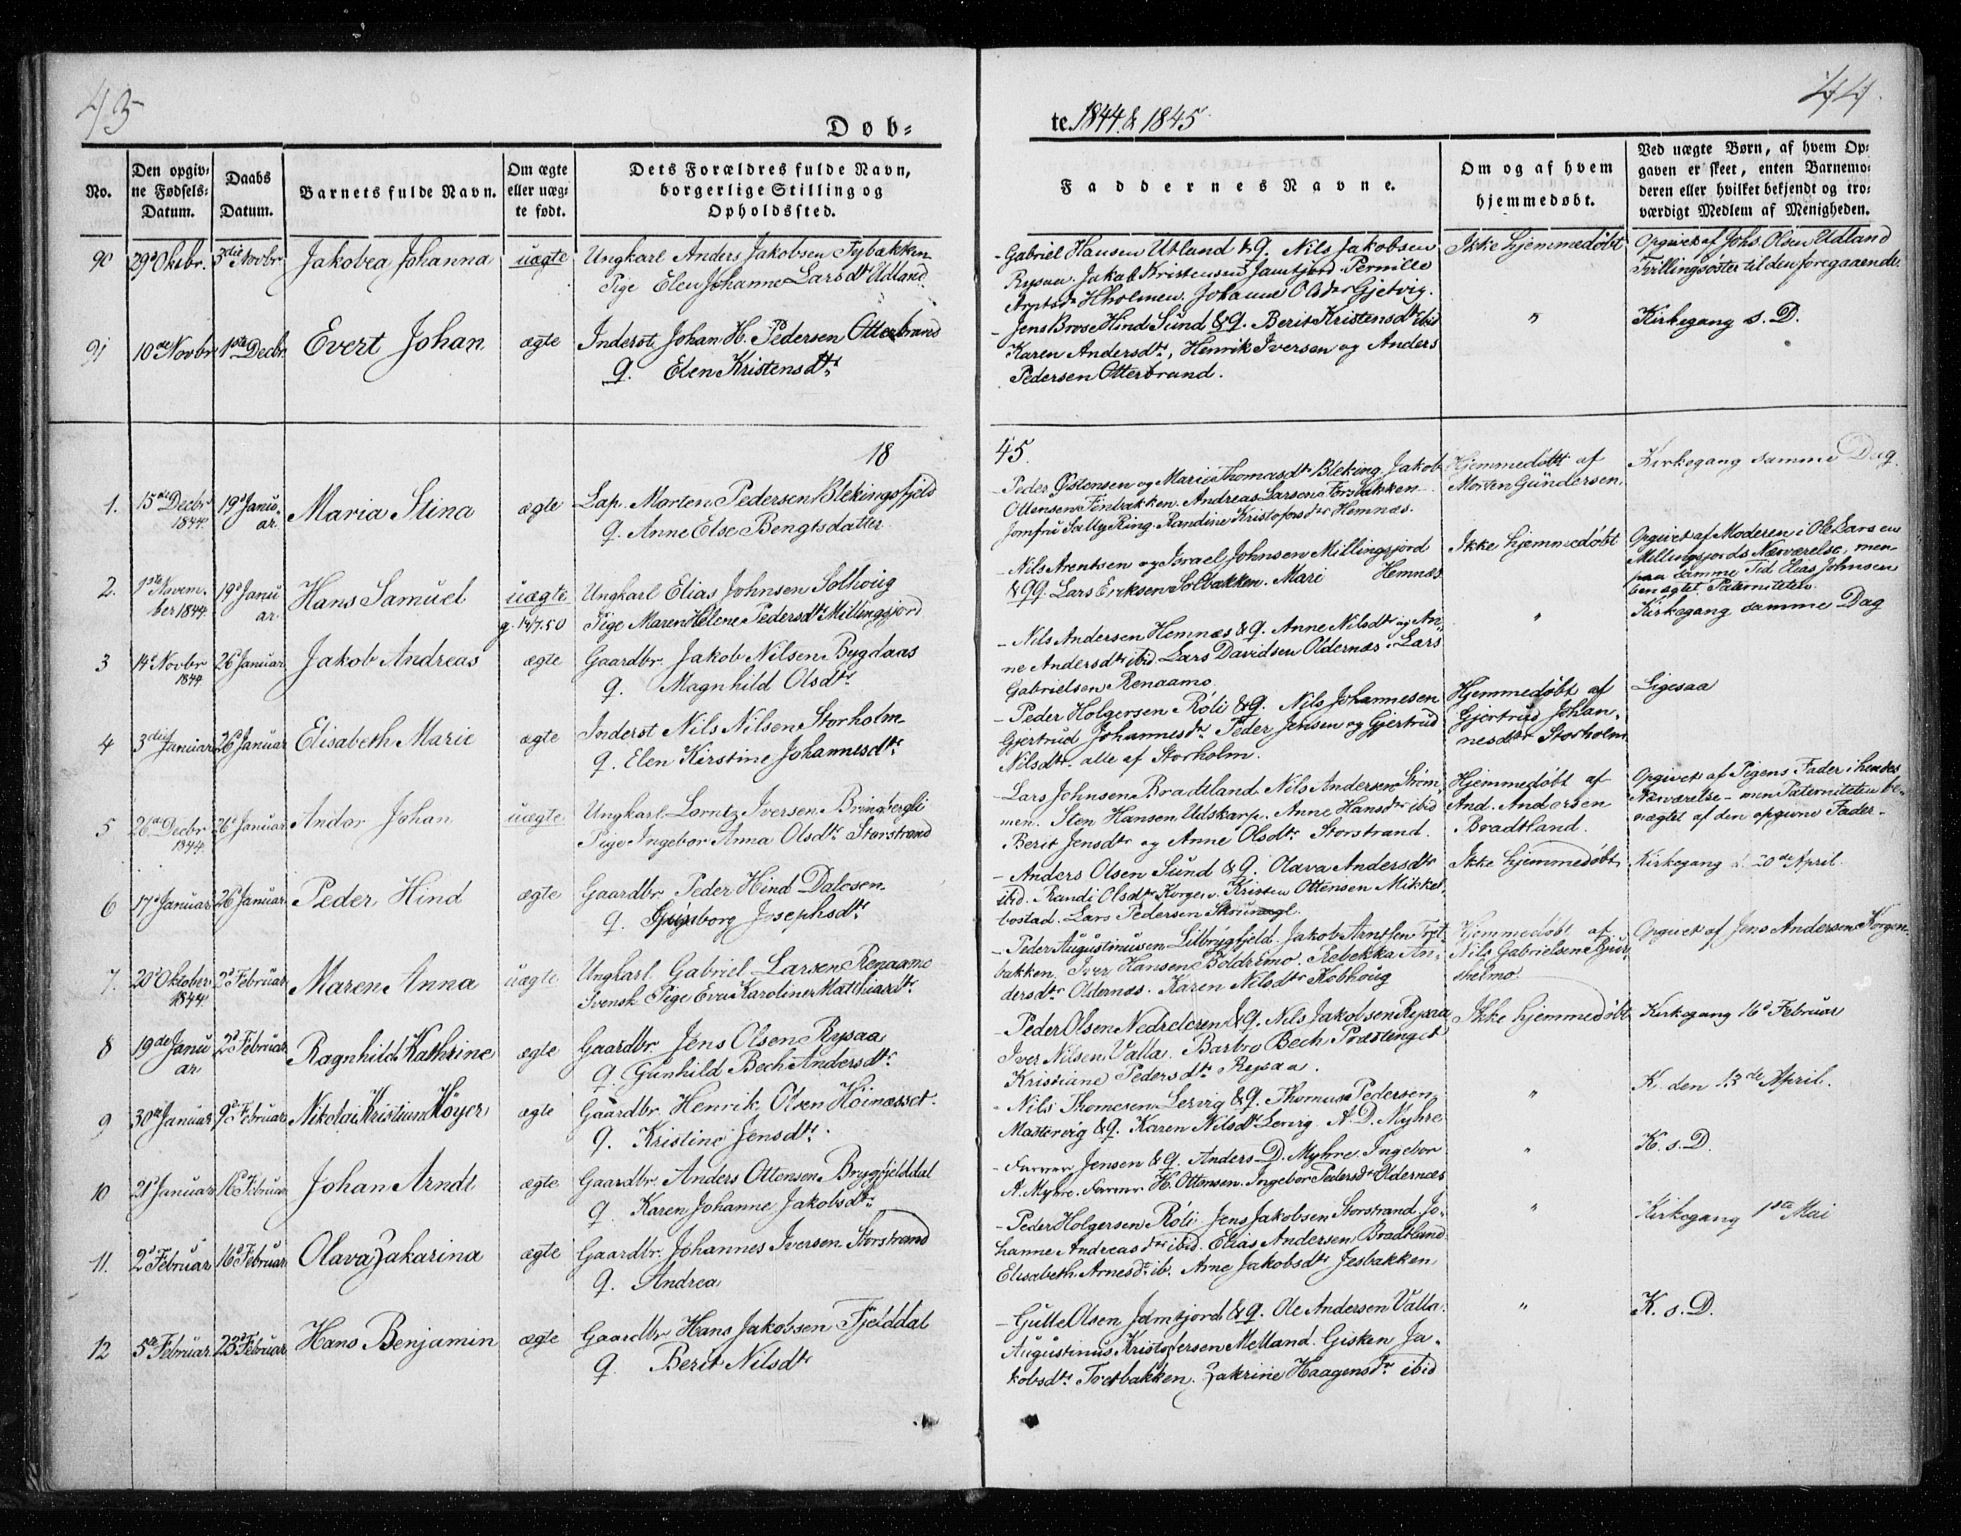 43
44.
Døb-
te. 1844 & 1845
No.
Den opgiv-
ne Fødsels-
Datum.
Daabs
Datum.
Barnets fulde Navn.
Om ægte
eller uæg-
te født.
Dets Forældres fulde Navn,
borgerlige Stilling og
Opholdssted.
Faddernes Navne.
Om og af hvem
hjemmedøbt.
Ved uægte Børn, af hvem Op-
gaven er skeet, enten Barnemo-
deren eller hvilket bekjendt og tro-
værdigt Medlem af Menigheden.
90 29de Oktbr. 3die Novbr. Jakobea Johanna uægte
Ungkarl Anders Jakobsen
Pige Elen Johanne Larsdtr Utland.
- Gabriel Hansen Utland & q. Nils Jakobsen
Rysaa. Jakob Kristensen Jamtjord. Pernille
Holmen. Johanne Olsdr Gjetvig.
Ikke hjemmedøbt
Opgivet af Johs. Olsen Udland
Tvillingsøster til den foregaaende.
91 10de Novbr 1ste Decbr Evert Johan ægte
Inderst Johan H. Pedersen Otterbrand
q. Elen Kristensdtr
- Jens Brose Hind Sund & q. Berit Kristensdtr ibid
Karen Andersdtr, Henrik Iversen og Anders
Pedersen Otterbrand.
"
Kirkegang s. D.
18
45.
1. 15de Decbr 1844. 19de Januar. Maria Stina ægte
Lap. Morten Pedersen Blekingsfjeld
q. Anne Else Bengtsdatter
- Peder Østensen og Marie Thomasdtr Bleking. Jakob
Ottensen Finbakken. Andreas Larsen Forsbakken
Jomfru Sally Ring. Randine Kristofersdr Hemnæs.
Hjemmedøbt af
Morten Gundersen,
Kirkegang samme Dag.
2. 1ste November 1844. 19de Januar. Hans Samuel uægte
Ungkarl Elias Johnsen Solhoug
Pige Maren Helene Pedersdtr Millingsjord
- Nils Arentsen og Israel Johnsen Millingsjord
& qq. Lars Eriksen Solbakken. Mari Hemnæs
Ikke hjemmedøbt
Opgivet af Moderen i Ole Larsen
Millingsjords Nærværelse, men
paa samme Tid Elias Johnsen
benægtet Paterniteten.
3 14de Novbr 1844. 26de Januar Jakob Andreas ægte
Gaardbr. Jakob Nilsen Bygdaas
q. Magnhild Olsdtr
- Nils Andersen Hemnæs & q. Anne Nilsdtr og An-
ne Andersdtr ibid. Lars Davidsen Oldernæs. Lars
Gabrielsen Renaamo.
"
Kirkegang samme Dag
4 3die Januar 26de Januar Elisabeth Marie ægte
Inderst Nils Nilsen Storholm
q. Elen Kirstine Johannesdtr
- Peder Holgersen Røli & q. Nils Johannesen
Gjertrud Johannesdr Peder Jensen og Gjertrud
Nilsdtr. alle af Storholm.
Hjemmedøbt af
Gjertrud Johan-
nesdtr Storholm
Ligesaa
5 26de Decbr 1844. 26de Januar Andor Johan uægte
Ungkarl Lorntz Iversen Bringbergli
Pige Ingebor Anna Olsdtr Storstrand
- Lars Johnsen Bradtland. Nils Andersen Strøm-
men. Sten Hansen Udskarp. Anne Hansdtr ibid
Berit Jensdtr og Anne Olsdtr Storstrand.
Hjemmedøbt af
And. Andersen
Bradtland.
Opgivet af Pigens Fader i hendes
Nærværelse - men Paterniteten be-
nægtet af den opgivne Fader.
6 17de Januar 26de Januar Peder Hind ægte
Gaardbr. Peder Hind Dalosen
q. Josephsdtr
- Anders Olsen Sund & q. Olava Andersdtr
ibid. Randi Olsdtr Korgen. Kristen Ottensen Mikkel-
bostad. Lars Pedersen
Ikke hjemmedøbt
Kirkegang d. 20de April.
7. 20de Oktober 1844. 2de Februar Maren Anna uægte
Ungkarl Gabriel Larsen Renaamo
Svensk Pige Eva Karoline Matthiasdtr
- Peder Augustinusen Lilbrygfjeld. Jakob Arntsen Tvet-
bakken. Iver Hansen Boldremo. Rebekka An-
dersdtr Oldernæs. Karen Nilsdtr Kobhoug
Hjemmedøbt af
Nils Gabrielsen
Opgivet af Jens Andersen Korgen
8 19de Januar 2de Februar Ragnhild Kathrine ægte
Gaardbr. Jens Olsen Rysaa
q. Gunhild Bech Andersdtr
- Peder Olsen Nedreleren & q. Nils Jakobsen Rysaa
Iver Nilsen Valla. Barbro Bech Præstenget
Kristiane Pedersdtr Rysaa.
Ikke hjemmedøbt
Kirkegang 16de Februar
9 30de Januar 9de Februar Nikolai Kristian Høyer ægte
Gaardbr. Henrik Olsen Høinæsset.
q. Kristine Jensdtr.
- Nils Thomesen Lervig & q. Thomas Pedersen
Mastervig & q. Karen Nilsdtr Lervig. A. D. Myhre
"
K. den 13de April.
10 21de Januar 16de Februar Johan Arndt ægte
Gaardbr. Anders Ottensen Brygfjelddal
q. Karen Johanne Jakobsdtr
- Farver Jensen & q. Anders D. Myhre. Ingebor
A. Myhre. Farver H. Ottensen. Ingebor Pedersdtr Oldernæs
"
K. s. D.
11. 2de Februar 16de Februar Olava Zakarina ægte
Gaardbr. Johannes Iversen Storstrand
q. Andrea
- Peder Holgersen Røli Jens Jakobsen Storstrand. Jo-
hanne Andreasdtr ibid. Elias Andersen Bradtland
Elisabeth Arnesdr ib. Arne Jakobsdtr Jesbakken
"
Kirkegang 1ste Mai
12 5te Februar 23de Februar Hans Benjamin ægte
Gaardbr Hans Jakobsen Fjelddal
q. Berit Nilsdtr
- Gulle Olsen Jamtjord & q. Ole Andersen Valla.
Augustinus Kristofersen Melland. Gisken Ja-
kobsdtr Tvetbakken. Zakrine Haagensdr ibid
"
K. s. D.